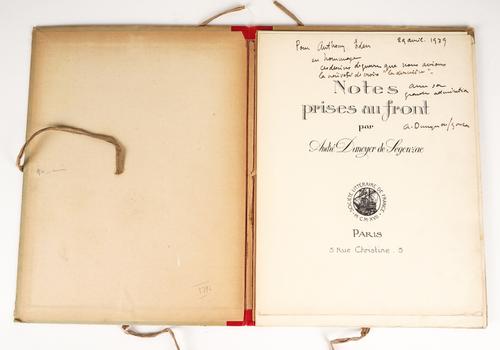 Pour Anthony Eden 29 avril. 1939
en hommage
ces dessins de guerre que nous avions
la naïveté de croire "la dernière".
grande admiration
Notes
prises au front
par
André Dunoyer de Segonzac
SOCIÉTÉ LITTÉRAIRE DE FRANCE
M·CM·XVII
PARIS
5 Rue Christine . 5